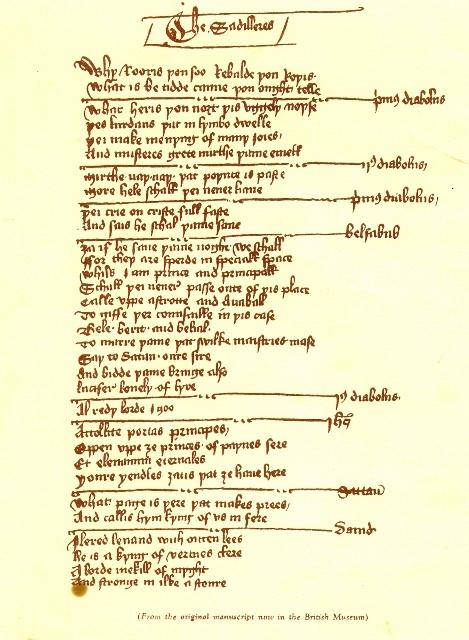 The Sadilleres
Why Roris þou soo Rebalde þou Roris
What is be tidde canne þou ought telle
pmus diabolus
What heris þou noȝt þis vggely noyse
þes lurdans þat in lymbo dwelle
þei make menyng of many joies
And musteres grete mirthe þame emell
ijs diabolus
mirthe nay nay þat poynte is paste
more hele schall þei never have
pmus diabolus
þei crie on criste full faste
And sais he schal þame save
belsabub
Ya if he save þame noght we schall
ffor they are sperde in speciall space
Whils I am prince and principall
Schall þei never passe oute of þis place
Calle uppe astrotte and anaball
To giffe þer counsaille in þis case
Bele berit and belial
To marre þame þat swilke maistries mase
Say to Satan oure sire
And bidde þame bringe also
lucifer lovely of lyre
js diabolus
Al redy lorde I goo
Attollite portas principes
Oppen uppe ȝe princes of paynes sere
Et eleuamini eternales
Youre yendles ȝatis þat ȝe have here
Sattan
What page is þere þat makes prees
And callis hym kyng of vs in fere
David
I lered levand with outen lees
he is a kyng of vertues clere
A lorde mekill of myght
And stronge in ilke a stoure
(From the original manuscript now in the British Museum)